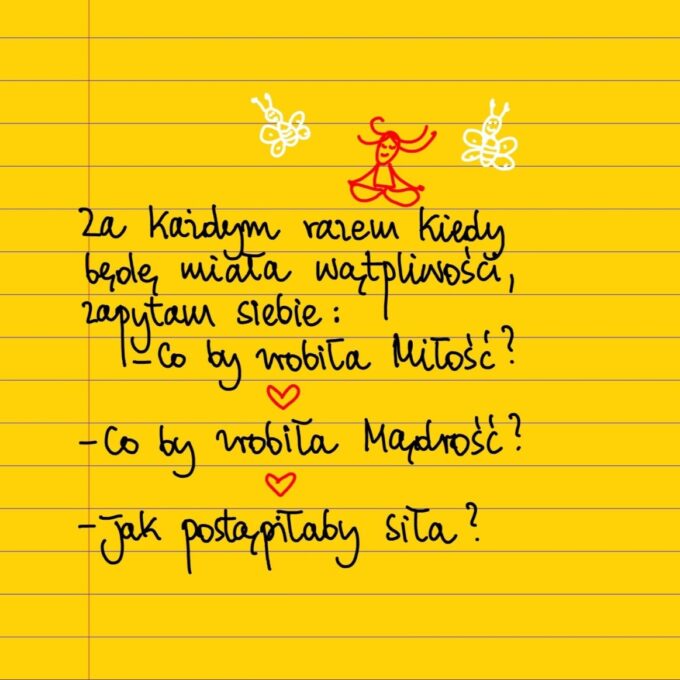 Za każdym razem kiedy
będę miała wątpliwości,
zapytam siebie:
- Co by zrobiła Miłość?
- Co by zrobiła Mądrość?
- jak postąpiłaby siła?